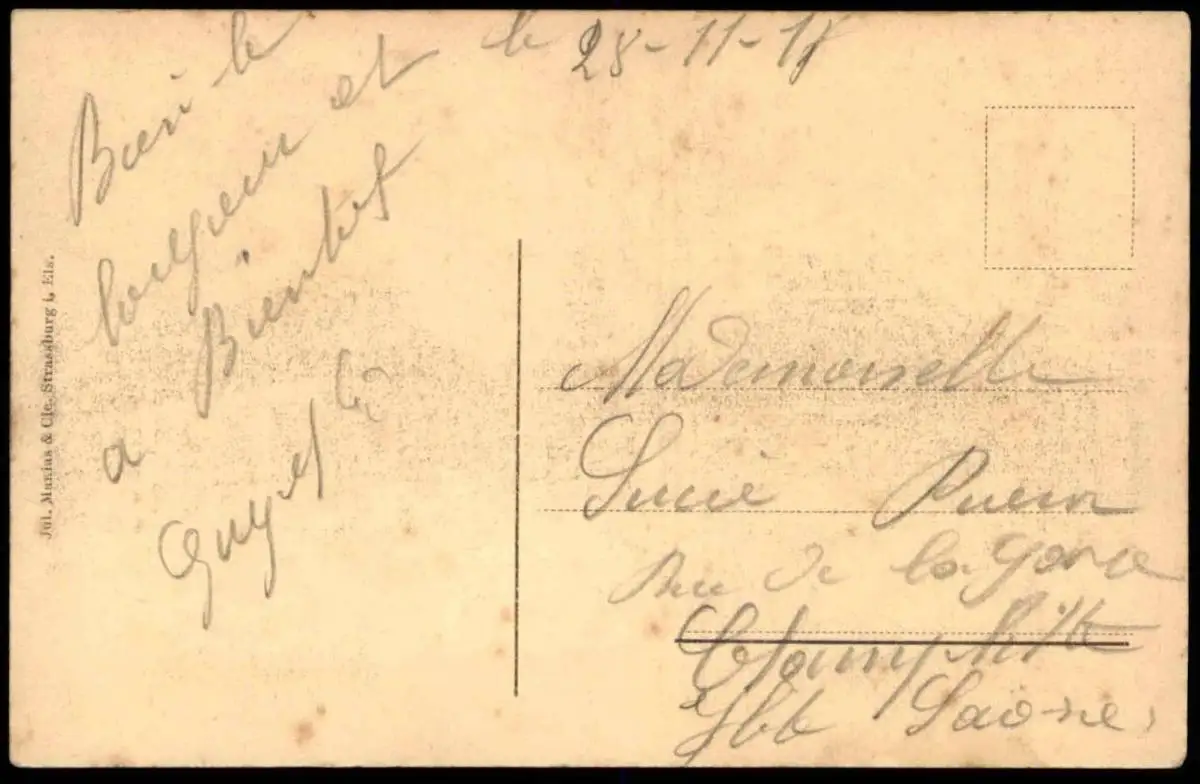 le 28-11-18
Bien le
bonjour et
a Bientot
Guyot
Jul. Manias & Cie. Strassburg i. Els.
Mademoiselle
Lucie
Rue de la gare
Champlitte
Hte Saône